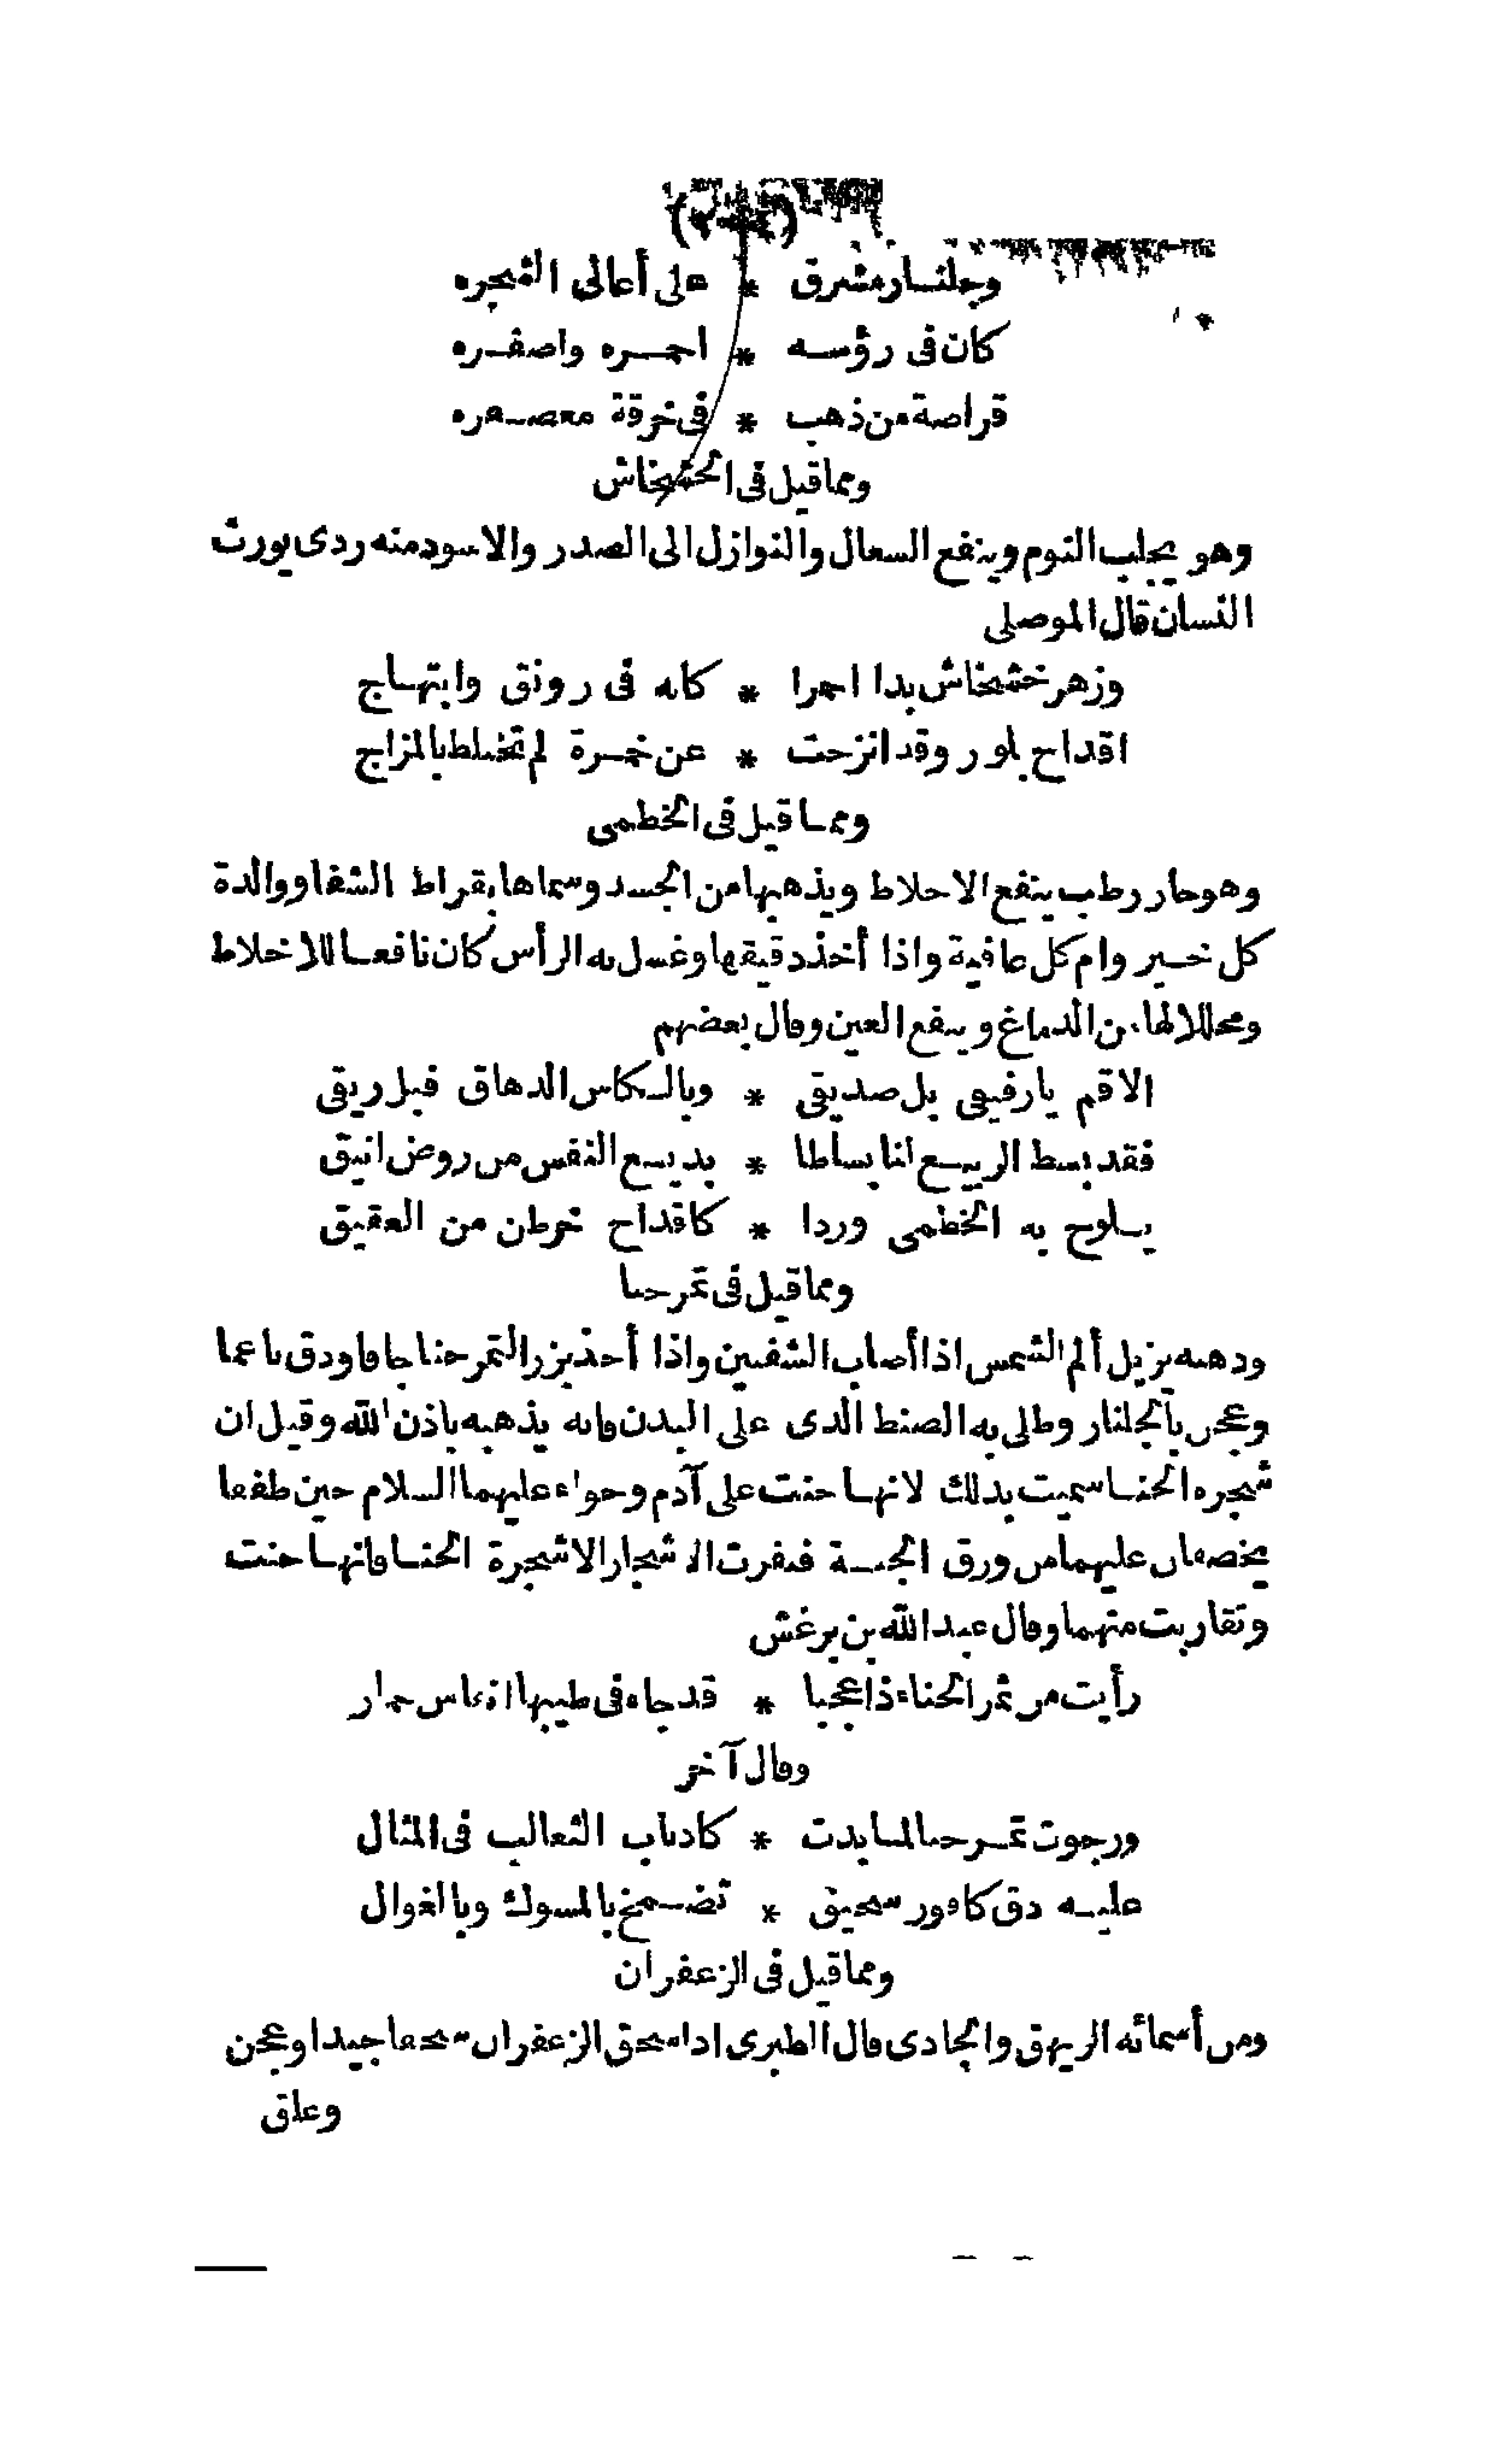 وجلنار مشرق * على أعالى الشجره
كان فى رؤسه * احمره واصفره
قراصة من ذهب * فى خرقة معصفره
ومما قيل فى الخشخاش
وهو يجلب النوم وينفع السعال والنوازل الى الصدر والاسود منه ردى يورث
النسيان قال الموصلى
وزهر خشخاش بدا احمرا * كانه فى رونق وابتهاج
اقداح بلور وقد انزحت * عن خمرة لم تختلط بالمزاج
ومما قيل فى الخطمى
وهو حار رطب ينفع الاخلاط ويذهبها من الجسد وسماها بقراط الشفا ووالدة
كل خير وام كل عافية واذا أخذ دقيقها وغسل به الرأس كان نافعا للاخلاط
ومحللا لها من الدماغ وينفع العين وقال بعضهم
الا قم يا رفيقى بل صديقى * وبالكاس الدهاق قبل ريقى
فقد بسط الربيع لنا بساطا * بديع النقش من روض انيق
يلوح به الخطمى وردا * كاقداح خرطن من العقيق
ومما قيل فى تمر حنا
ودهنه يزيل ألم الشمس اذا أصاب الشفتين واذا أخذ بزر التمر حنا جافا ودق ناعما
وعجن بالجلنار وطلى به الصنط الذى على البدن فانه يذهبه باذن الله وقيل ان
شجره الحنا سميت بذلك لانها حنت على آدم وحواء عليهما السلام حين طفقا
يخصفان عليهما من ورق الجنة فنفرت الاشجار الا شجرة الحنا فانها حنت
وتقاربت منهما وقال عبد الله بن برغش
رأيت من ثمر الحناء ذا عجبا * قد جاء فى طيبها انفاس خمار
وقال آخر
ورجوت تمر حنا لما بدت * كاذناب الثعالب فى المثال
عليه دق كافور سحيق * تضمخ بالمسوك وبالغوال
ومما قيل فى الزعفران
ومن أسمائه الريهق والجادى قال الطبرى اذا سحق الزعفران سحقا جيدا وعجن
وعلق